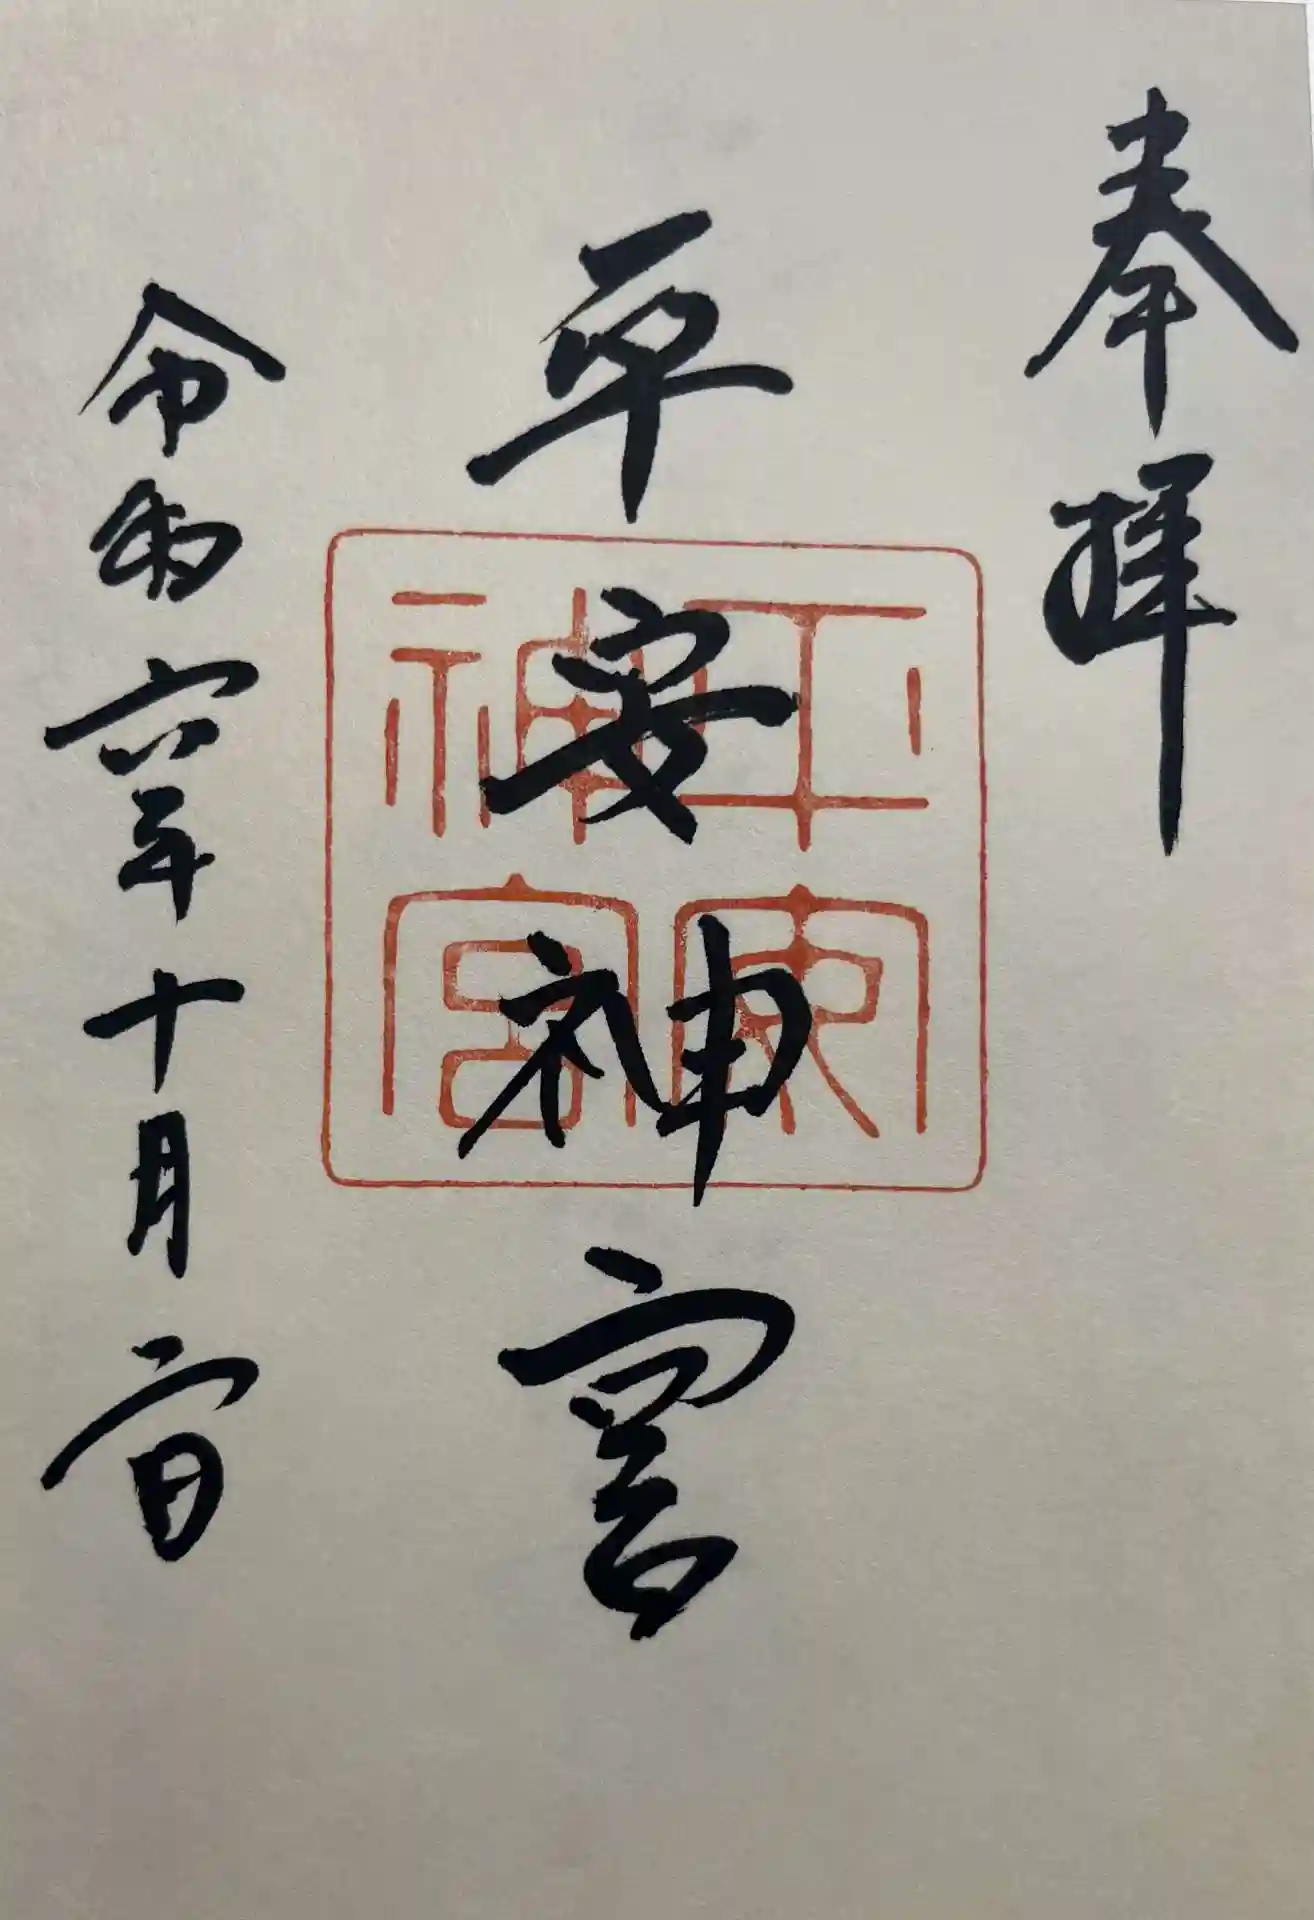 奉拝
平安神宮
平安神宮
令和六年十月二日